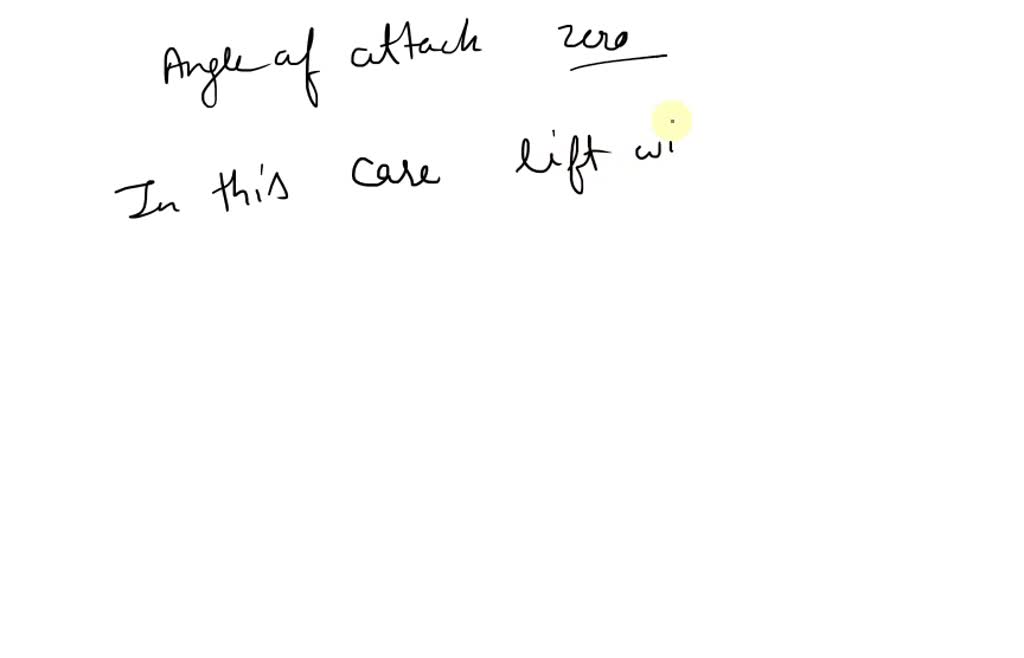 Angle of attack zero
In this case lift wi